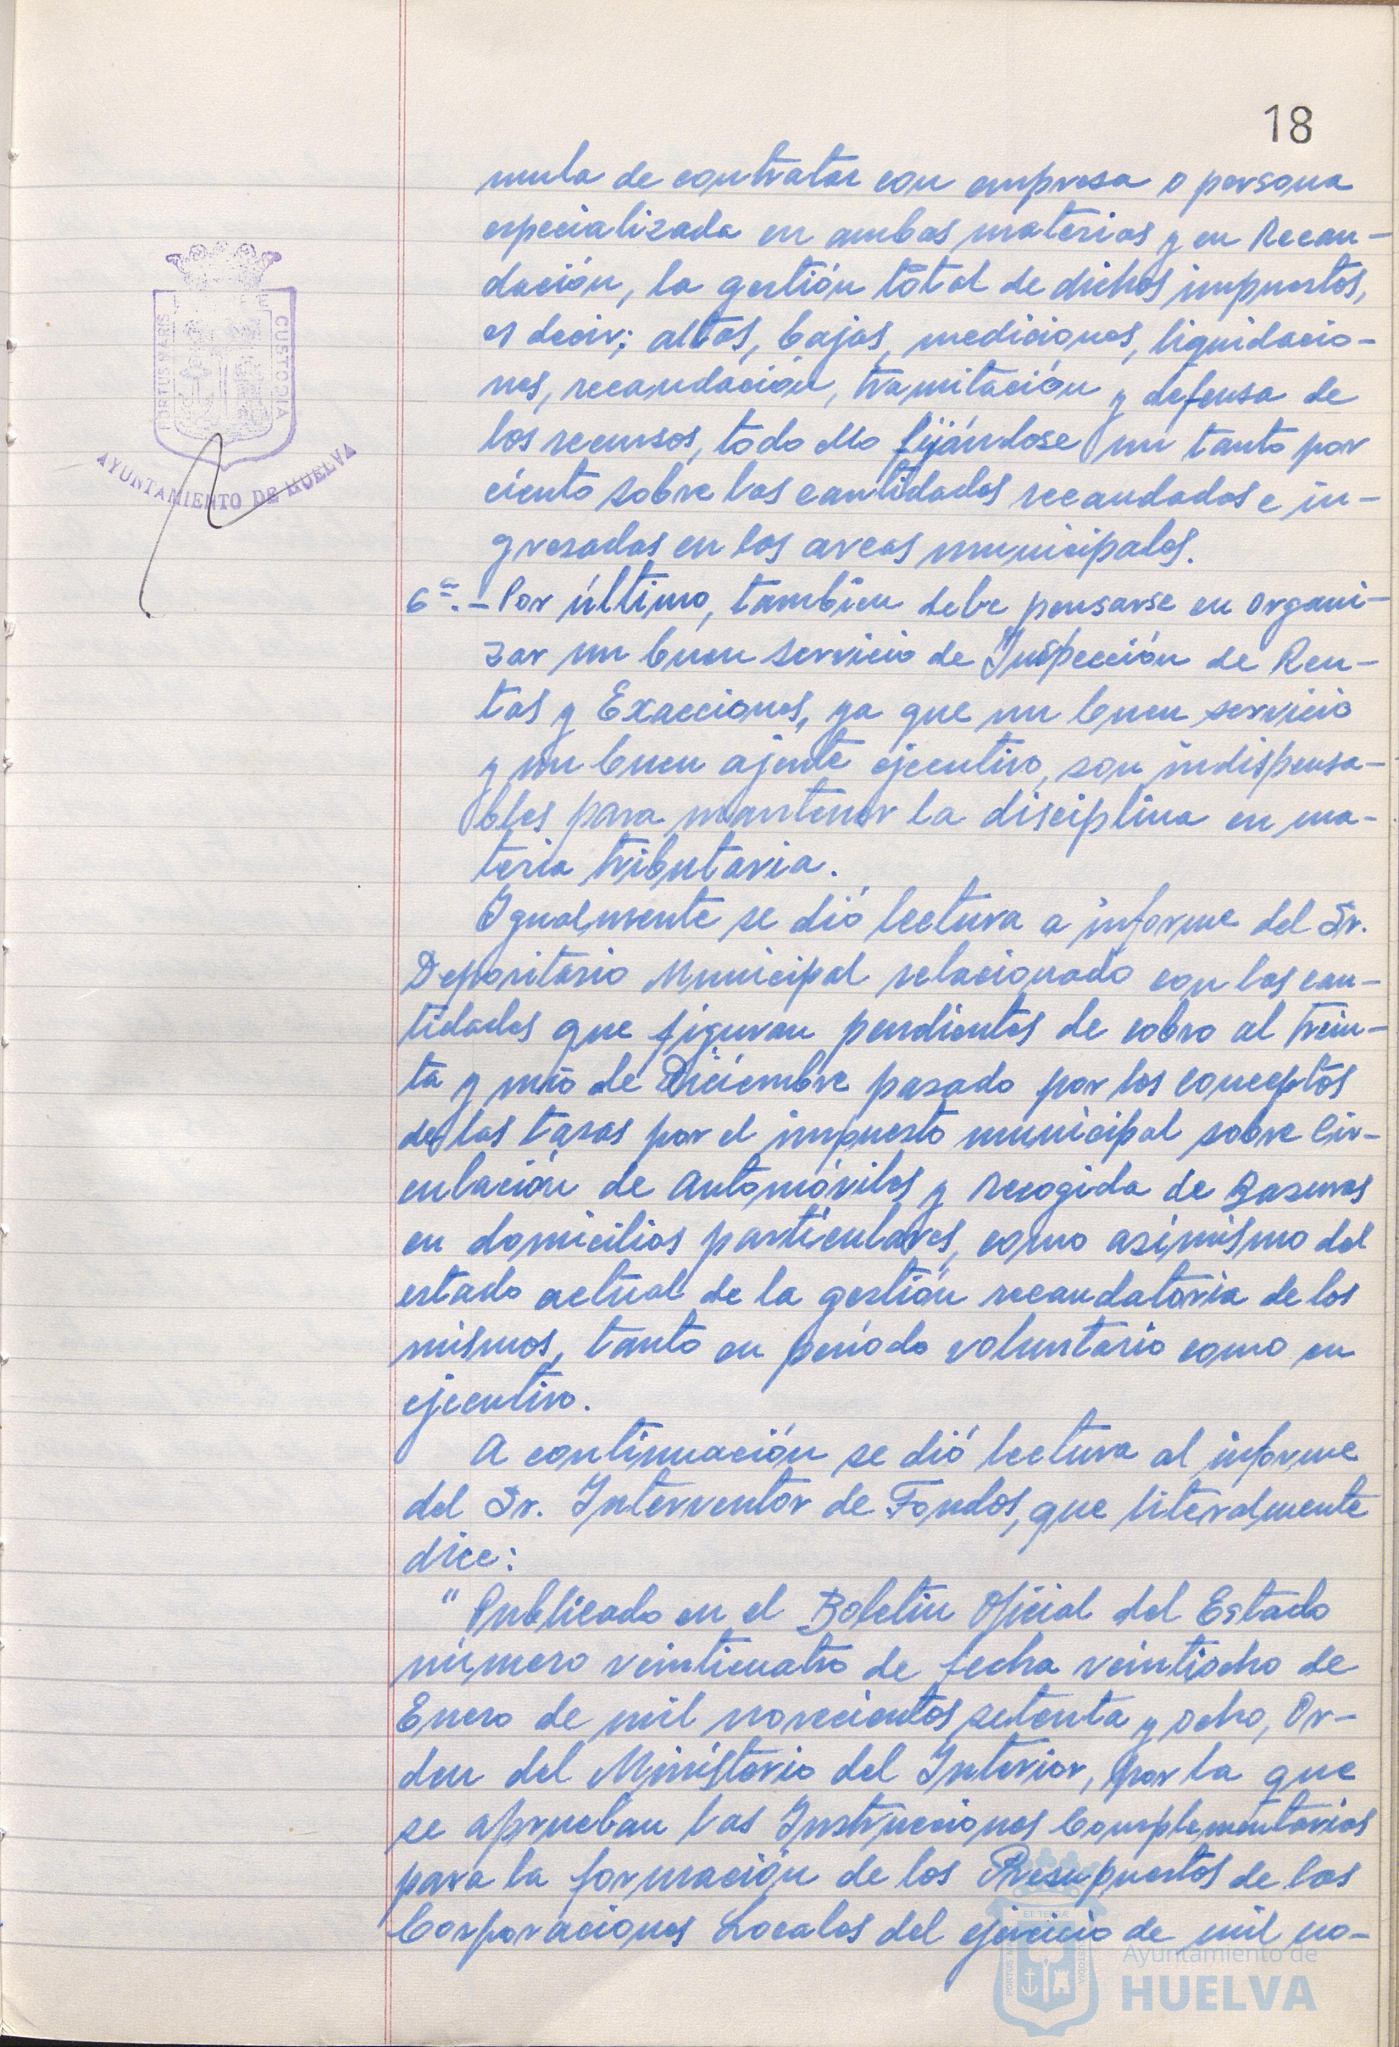 18
mula de contratar con empresa o persona
especializada en ambas materias y en Recau-
dación, la gestión total de dichos impuestos,
es decir; altas, bajas, mediciones, liquidacio-
nes, recaudación, tramitación y defensa de
los recursos, todo ello fijándose un tanto por
ciento sobre las cantidades recaudadas e in-
gresadas en las arcas municipales.
6ª.- Por último, tambien debe pensarse en organi-
zar un buen servicio de Inspección de Ren-
tas y Exacciones, ya que un buen servicio
y un buen ajente ejecutivo, son indispensa-
bles para mantener la disciplina en ma-
teria tributaria.
Igualmente se dió lectura a informe del Sr.
Depositario Municipal relacionado con las can-
tidades que figuran pendientes de cobro al trein-
ta y uno de Diciembre pasado por los conceptos
de las tasas por el impuesto municipal sobre Cir-
culación de Automóviles y Recogida de Basuras
en domicilios particulares, como asimismo del
estado actual de la gestión recaudatoria de los
mismos, tanto en período voluntario como en
ejecutivo.
A continuación se dió lectura al informe
del Sr. Interventor de Fondos, que literalmente
dice:
"Publicado en el Boletin Oficial del Estado
número veinticuatro de fecha veintiocho de
Enero de mil novecientos setenta y ocho, Or-
den del Ministerio del Interior, por la que
se aprueban las Instrucciones Complementarias
para la formación de los Presupuestos de las
Corporaciones Locales del ejercicio de mil no-
PORTUS MARIS
CUSTODIA
AYUNTAMIENTO DE HUELVA
Ayuntamiento de
HUELVA